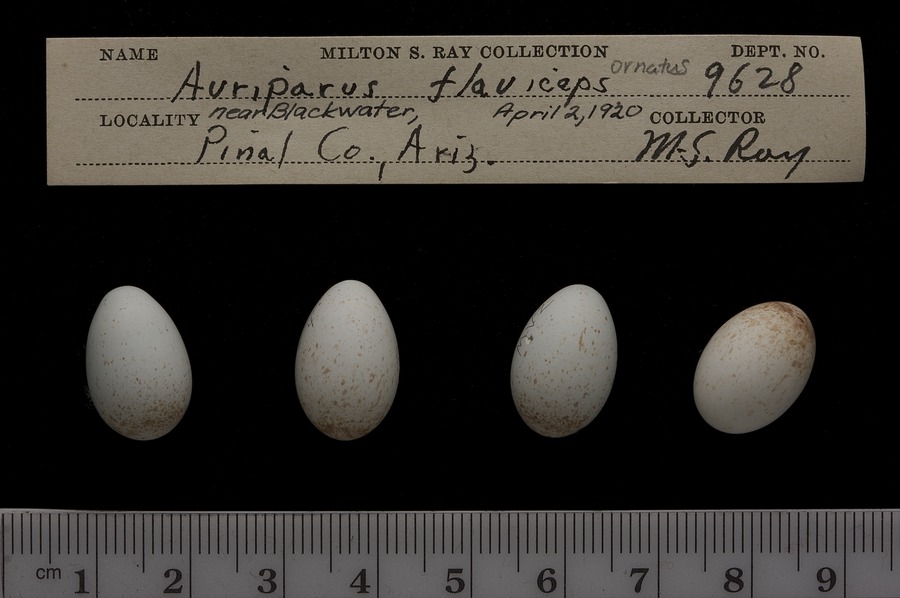 NAME MILTON S. RAY COLLECTION DEPT. NO.
Auriparus flaviceps ornatus 9628
LOCALITY near Blackwater, April 2, 1920 COLLECTOR
Pinal Co., Ariz. M.S. Ray
cm 1 2 3 4 5 6 7 8 9